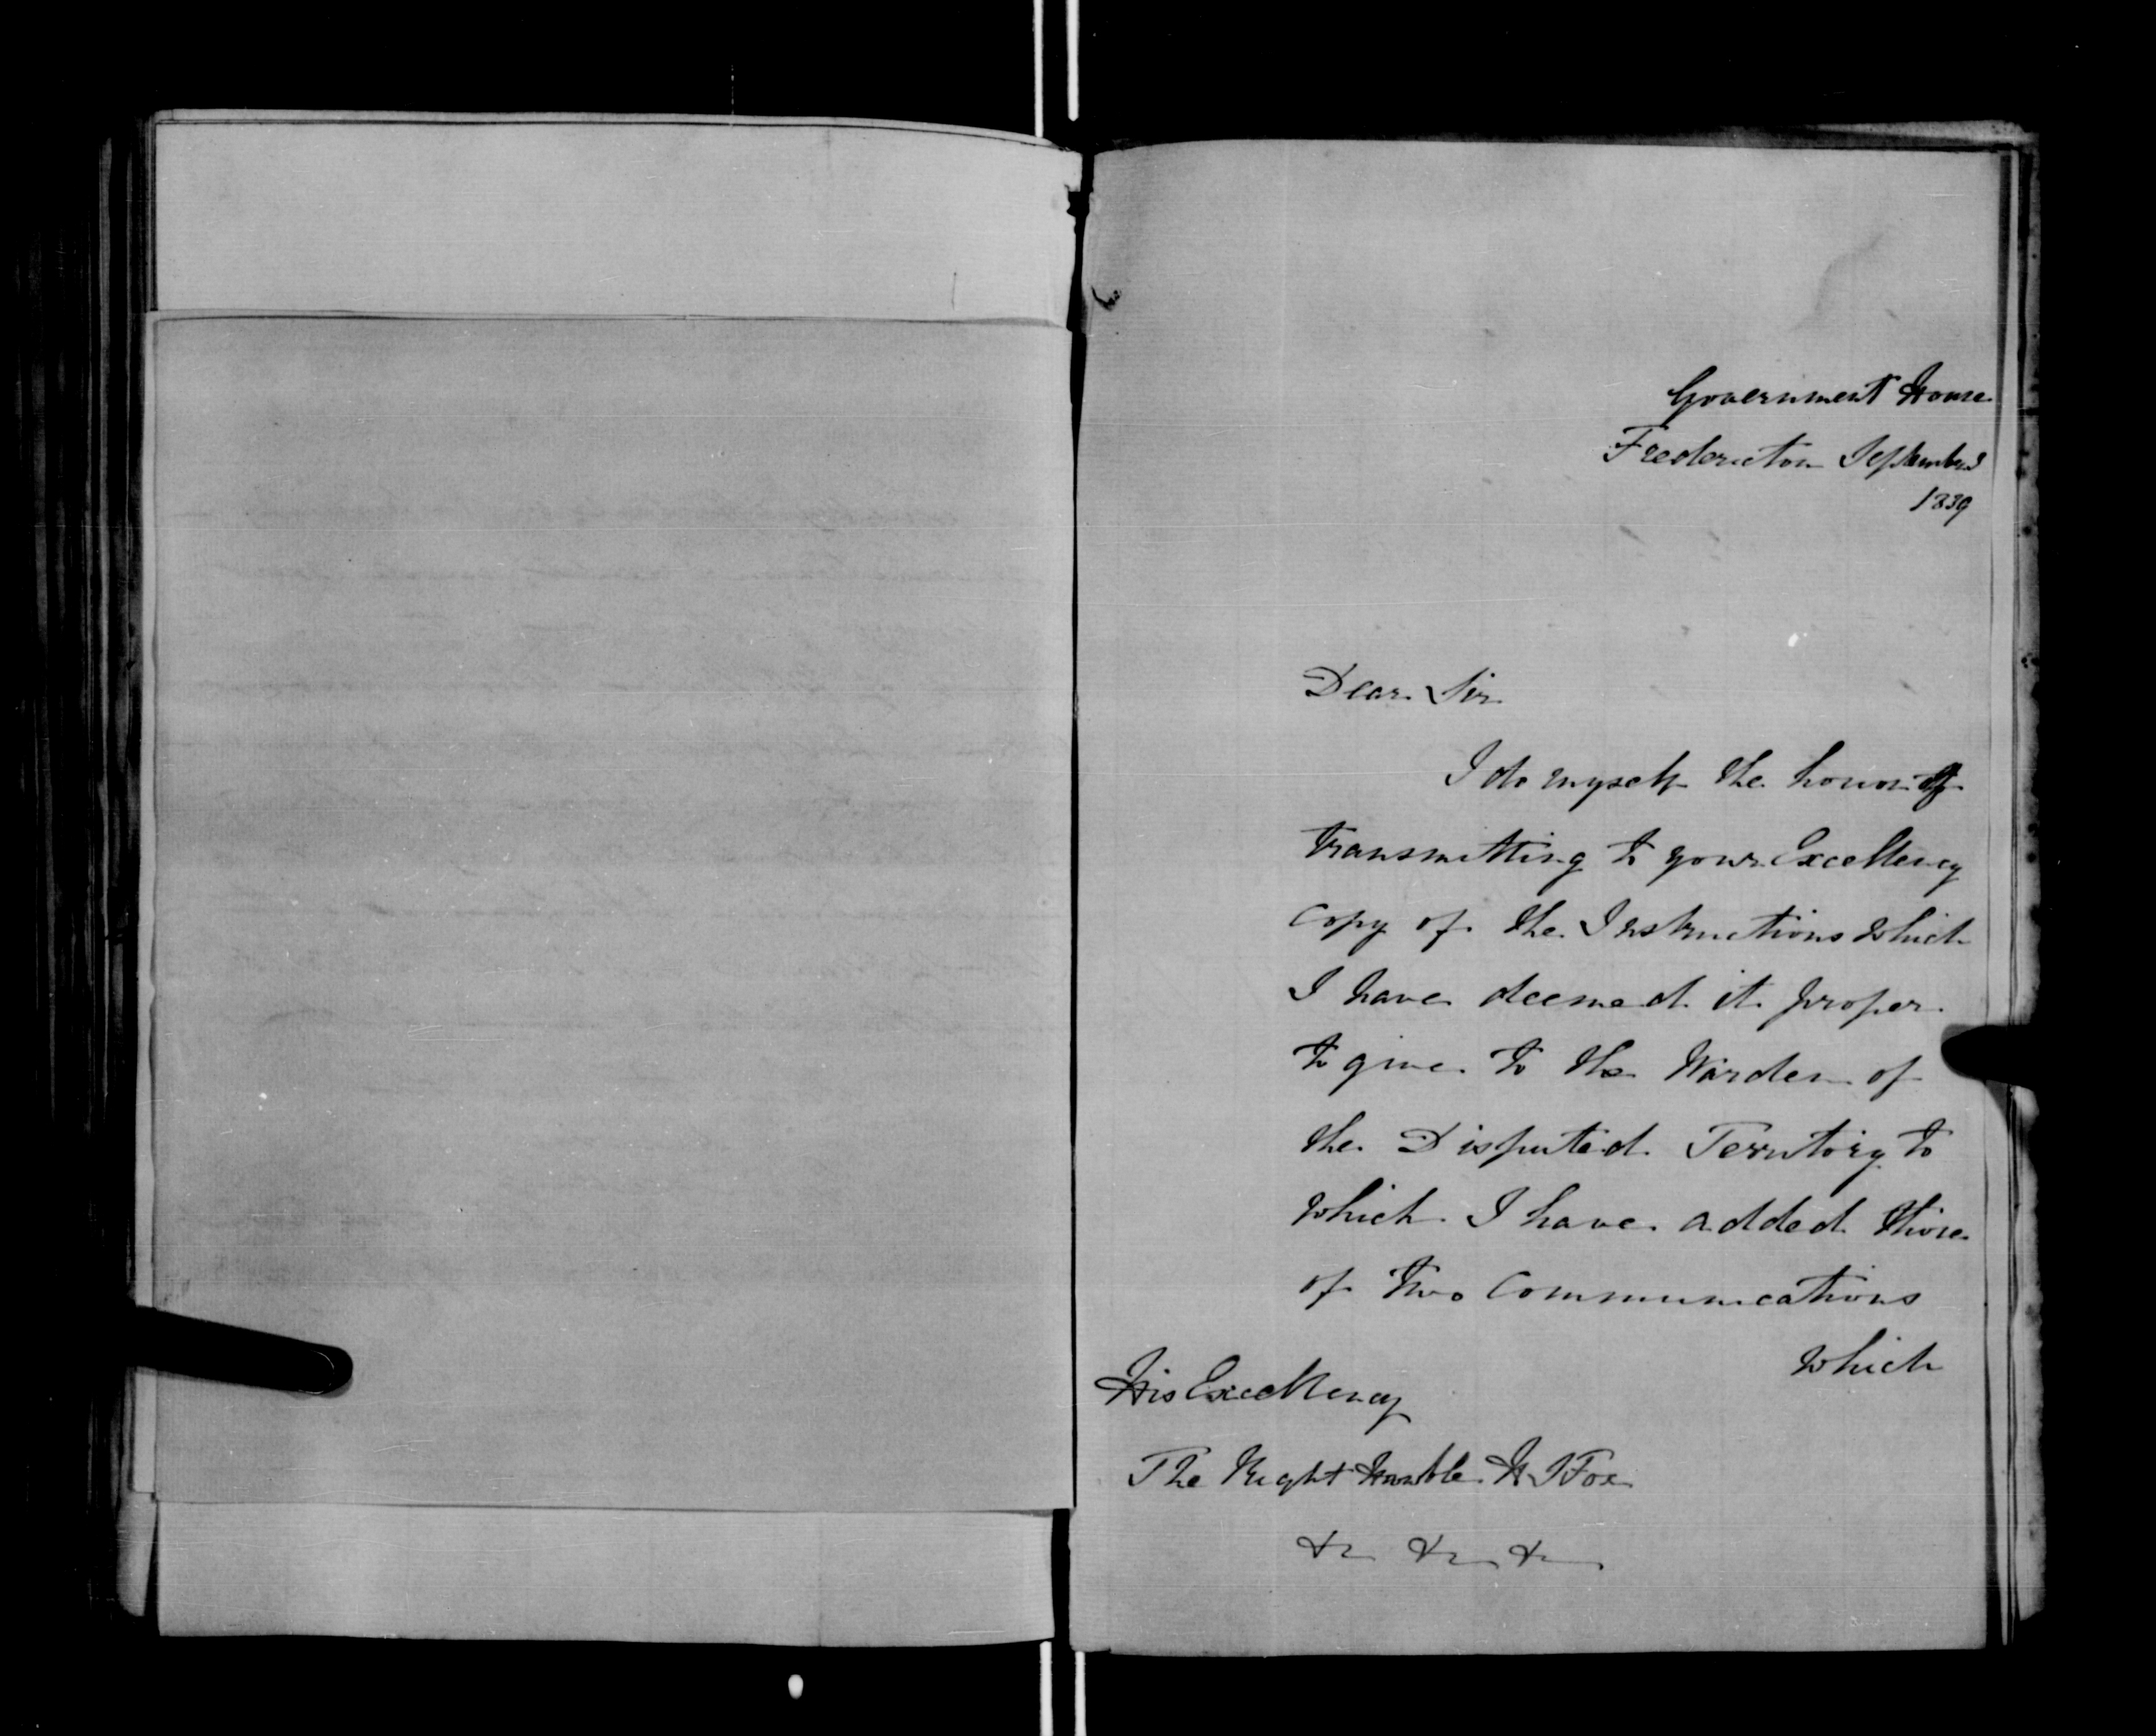 Government House
Fredericton September 3
1839
Dear Sir
I do myself the honor of
transmitting to your Excellency
copy of the Instructions which
I have deemed it proper
to give to the Warden of
the Disputed Territory to
which I have added those
of two communications
which
His Excellency
The Right Honble H S Fox
&c &c &c